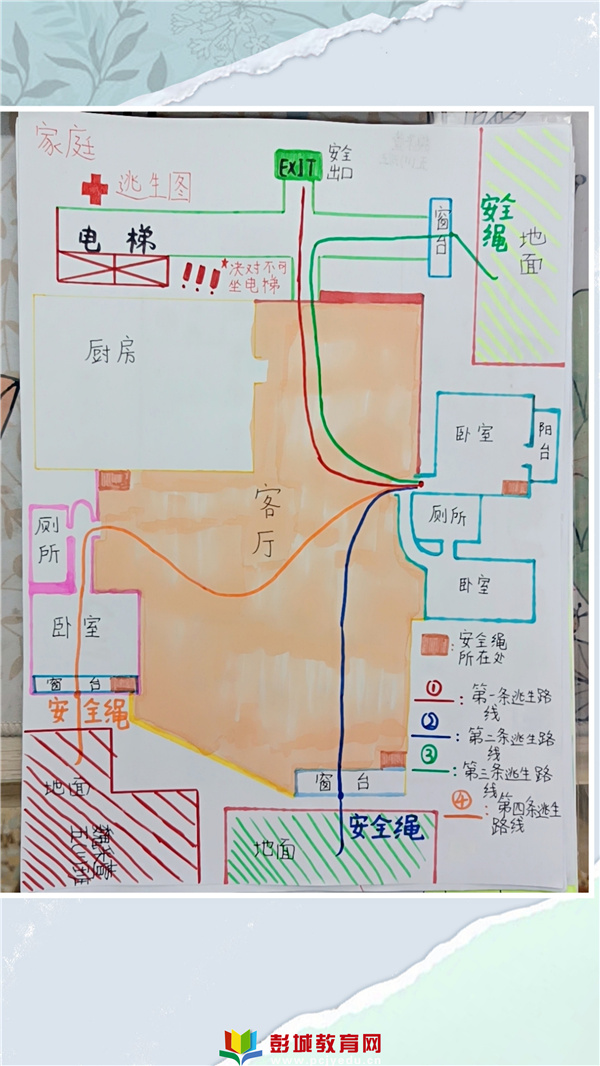 家庭
逃生图
EXIT
安全
出口
电梯
!!!
★决对不可
坐电梯
窗台
安全绳
地面
厨房
客厅
卧室
阳台
厕所
卧室
厕所
卧室
窗台
安全绳
地面
窗台
安全绳
地面
:安全绳
所在处
①:第一条逃生路
线
②:第二条逃生路
线
③:第三条逃生路
线
④:第四条逃生
路线
彭城教育网
www.pcjyedu.cn